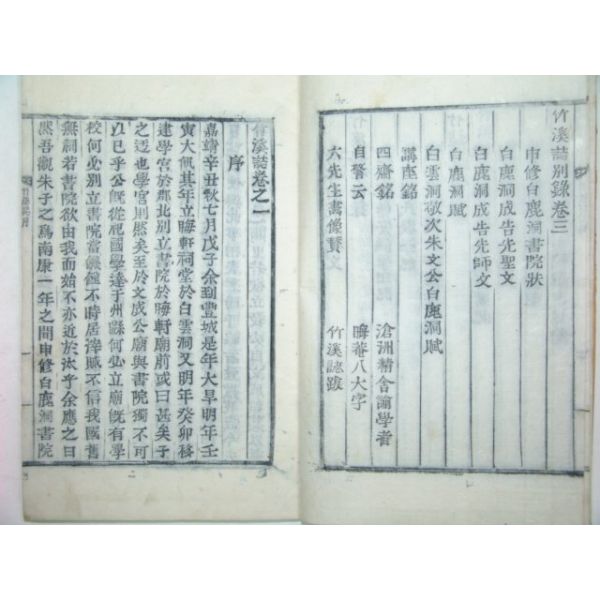 竹溪誌別錄卷三
申修白鹿洞書院狀
白鹿洞成告先聖文
白鹿洞成告先師文
白鹿洞賦
白雲洞敬次朱文公白鹿洞賦
講座銘
四齋銘 滄洲精舍諭學者
自警云 晦菴八大字
六先生畵像贊 竹溪誌跋
竹溪誌卷之一
序
嘉靖辛丑秋七月戊子余到豐城是年大旱明年壬
寅大飢其年立晦軒祠堂於白雲洞又明年癸卯移
建學宮於郡北別立書院於晦軒廟前或曰甚矣子
之迂也學宮則然矣至於文成公廟與書院獨不可
以已乎公旣從祀國學達于州縣何必立廟旣有學
校何必別立書院當饑饉不時居滓賦不信我國舊
無祠若書院欲由我而始不亦近於汰乎余應之曰
然吾觀朱子之爲南康一年之間申修白鹿洞書院